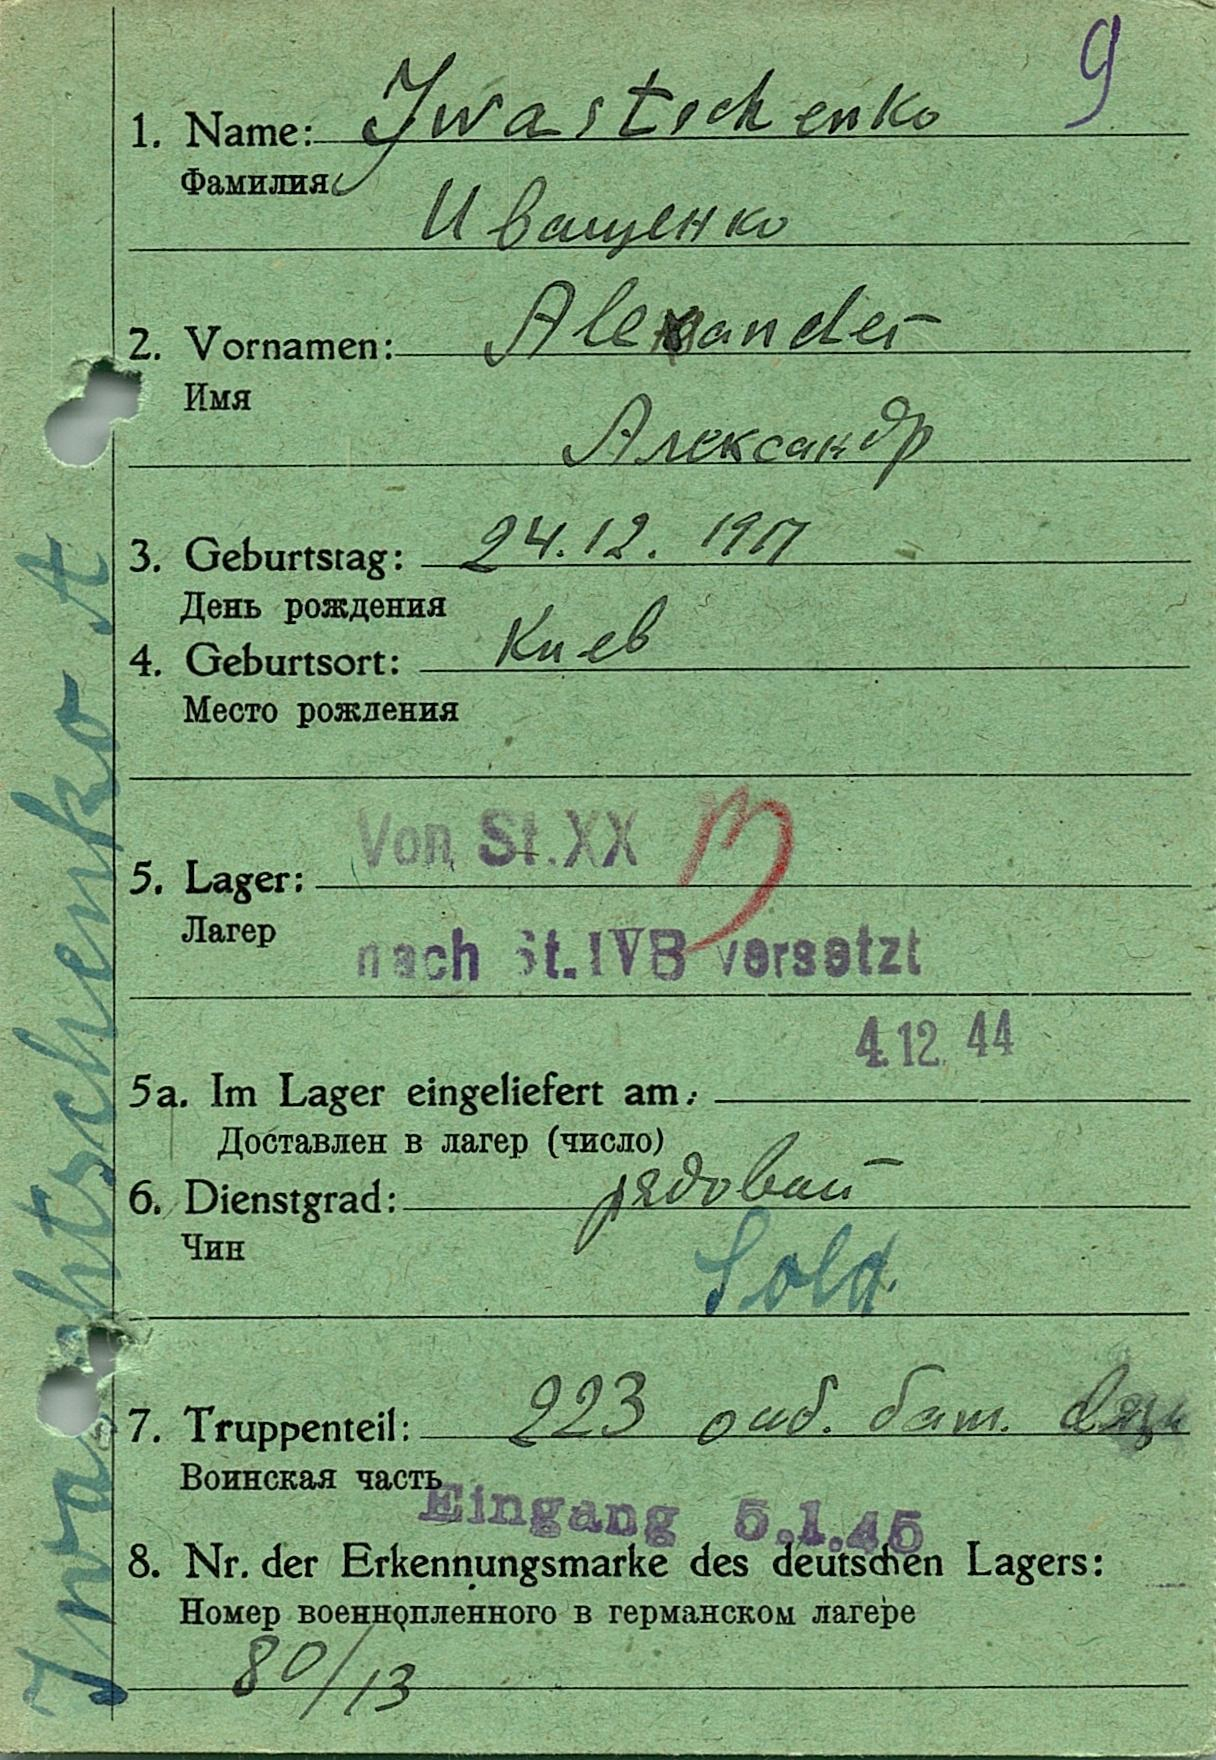 9
1. Name: Jwastschenko
Фамилия
Иващенко
2. Vornamen: Alexander
Имя
Александр
3. Geburtstag: 24.12.1917
День рождения
4. Geburtsort: Киев
Место рождения
Von St. XX
5. Lager:
Лагер
nach St. IVB versetzt
4.12.44
5a. Im Lager eingeliefert am:
Доставлен в лагер (число)
6. Dienstgrad: рядовой
Чин
Sold.
7. Truppenteil: 223 бат.
Воинская часть
Eingang 5.1.45
8. Nr. der Erkennungsmarke des deutschen Lagers:
Номер военнопленного в германском лагере
80/13
Iwaschtschenko A